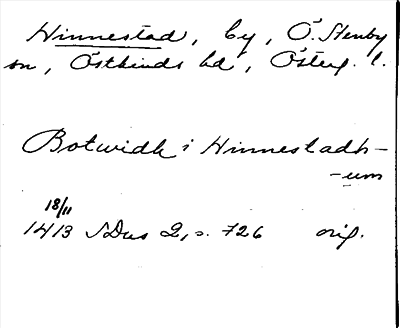 Hinnestad, by, Ö. Stenby
sn, Östkinds hd, Österg. l.
Botwidh i Hinnestadh-
-um
18/11
1413 SDns 2, s. 726 orig.